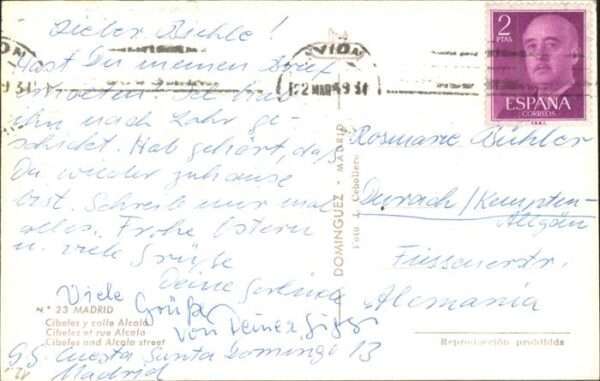 Lieber Bühle!
Hast Du meinen Brief
erhalten? Ich hab
ihn nach Lahr ge-
schickt. Hab gehört, daß
Du wieder zuhause
bist. Schreib mir mal
alles. Frohe Ostern
u. viele Grüße
Deine
Viele Grüße
von Deiner
GG. Cuesta Santo Domingo 13
Madrid
N.° 23 MADRID
Cibeles y calle Alcalá
Cibeles et rue Alcala
Cibeles and Alcala street
DOMINGUEZ - MADRID
Foto L.
AVION
2 MAR 59
2
PTAS
ESPAÑA
CORREOS
Rosmarie Bühler
Durach/Kempten-
Allgäu
Füssenerstr.
Alemania
Reproducción prohibida